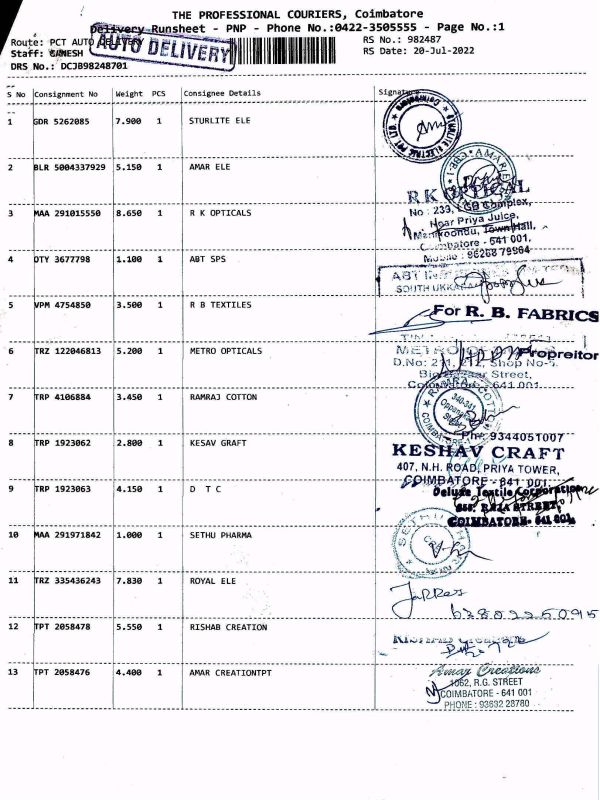 THE PROFESSIONAL COURIERS, Coimbatore
Delivery Runsheet - PNP - Phone No.:0422-3505555 - Page No.:1
AUTO DELIVERY
Route: PCT AUTO DELIVERY
RS No.: 982487
Staff: GANESH
RS Date: 20-Jul-2022
DRS No.: DCJB98248701
S No Consignment No Weight PCS Consignee Details Signature
1 GDR 5262085 7.900 1 STURLITE ELE
2 BLR 5004337929 5.150 1 AMAR ELE
RK OPTICAL
No : 239, LGB Complex,
3 MAA 291015550 8.650 1 R K OPTICALS
Near Priya Juice,
Town Hall,
Coimbatore - 641 001,
Mobile : 98268 79964
4 OTY 3677798 1.100 1 ABT SPS
ABT
SOUTH UKKADAM
5 VPM 4754850 3.500 1 R B TEXTILES
For R. B. FABRICS
6 TRZ 122046813 5.200 1 METRO OPTICALS
METRO
Propreitor
D.No: Shop No-
Street,
641 001
7 TRP 4106884 3.450 1 RAMRAJ COTTON
RAMRAJ COTTON
COIMBATORE-1
Ph: 9344051007
8 TRP 1923062 2.800 1 KESAV GRAFT
KESHAV CRAFT
407, N.H. ROAD, PRIYA TOWER,
COIMBATORE - 641 001.
9 TRP 1923063 4.150 1 D T C
Deluxe Textile Corporation
RAJA STREET,
COIMBATORE- 641 001
10 MAA 291971842 1.000 1 SETHU PHARMA
SETHU
11 TRZ 335436243 7.830 1 ROYAL ELE
12 TPT 2058478 5.550 1 RISHAB CREATION
13 TPT 2058476 4.400 1 AMAR CREATIONTPT
Amar Creations
1062, R.G. STREET
COIMBATORE - 641 001
PHONE : 93632 28780